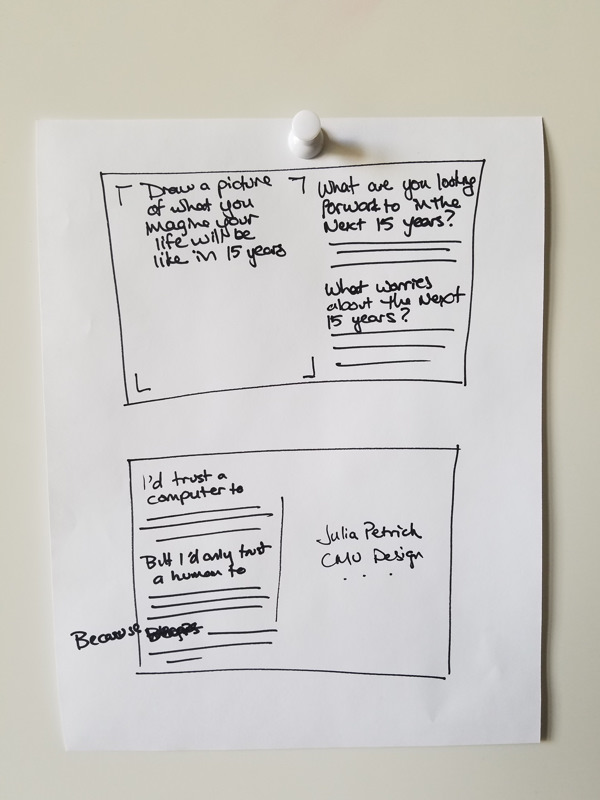 Draw a picture
of what you
imagine your
life will be
like in 15 years
What are you looking
forward to in the
Next 15 years?
What worries
about the Next
15 years?
I'd trust a
computer to
But I'd only trust
a human to
Because
Julia Petrich
CMU Design
. . .